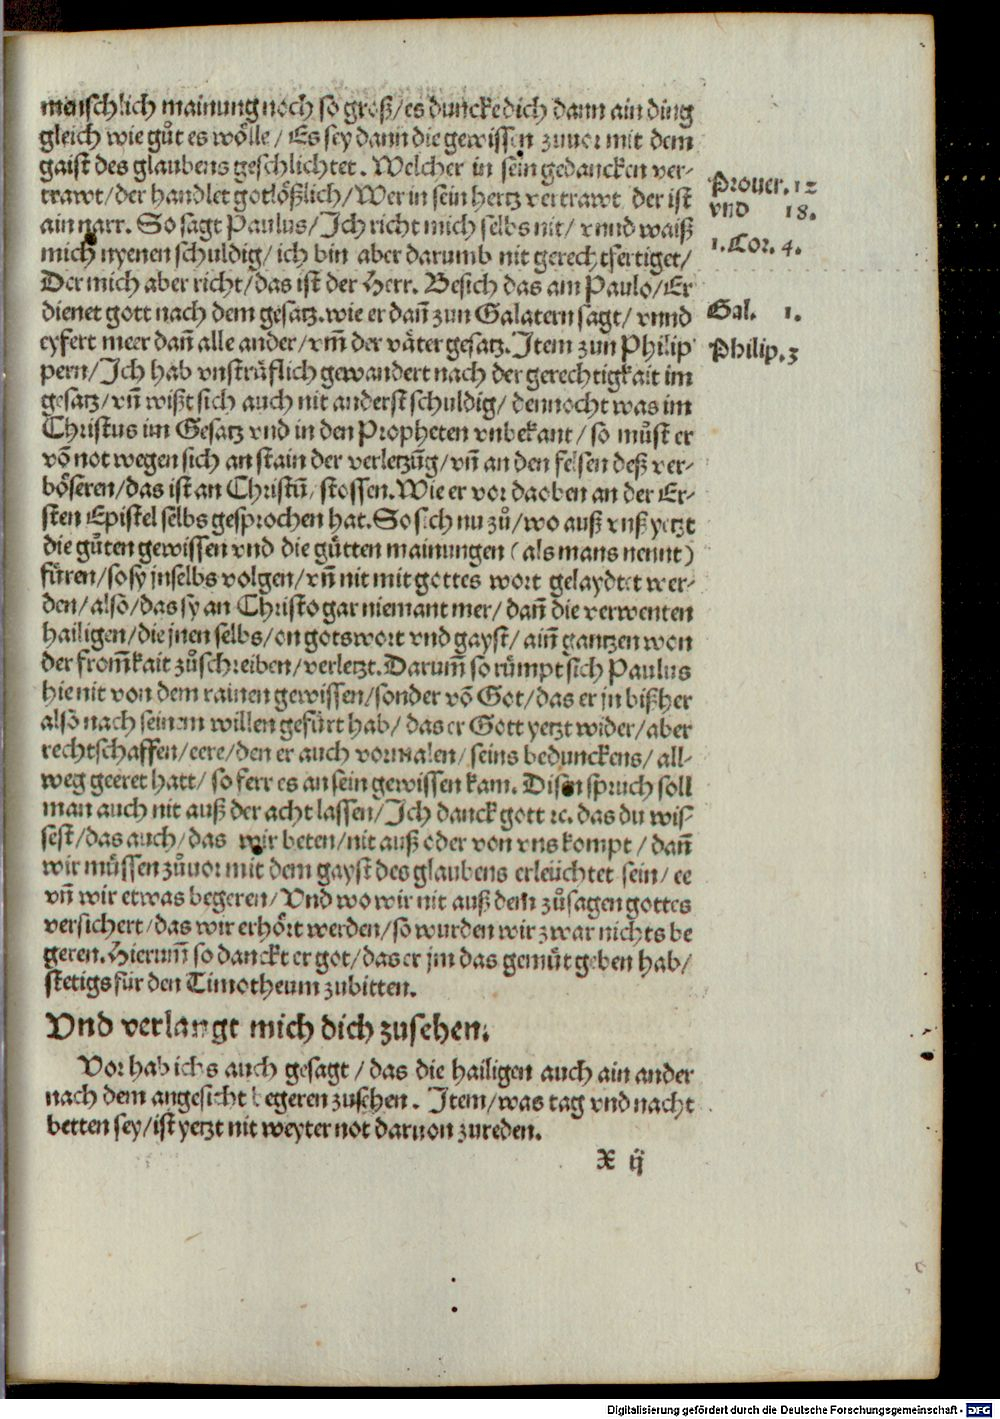 menschlich mainung noch so groß/es duncke dich dann ain ding
gleich wie gůt es wölle/ Es sey dann die gewissen zuuor mit dem
gaist des glaubens geschlichtet. Welcher in sein gedancken ver-
trawt/der handlet gotlößlich/Wer in sein hertz vertrawt der ist
ain narr. So sagt Paulus/Ich richt mich selbs nit/ vnnd waiß
mich nyenen schuldig/ich bin aber darumb nit gerechtfertiget/
Der mich aber richt/das ist der Herr. Besich das am Paulo/Er
dienet gott nach dem gesatz.wie er dañ zun Galatern sagt/vnnd
eyfert meer dañ alle ander/vm̃ der väter gesatz.Item zun Philip
pern/Ich hab vnsträflich gewandert nach der gerechtigkait im
gesatz/vñ wißt sich auch nit anderst schuldig/ dennocht was im
Christus im Gesatz vnd in den Propheten vnbekant/so můst er
võ not wegen sich an stain der verletzũg/vñ an den felsen deß ver-
böseren/das ist an Christũ/stossen.Wie er vor da oben an der Er-
sten Epistel selbs gesprochen hat.So sich nu zů/wo auß vnß yetzt
die gůten gewissen vnd die gůtten mainungen (als mans nennt)
füren/so sy jn selbs volgen/vñ nit mit gottes wort gelaydtet wer-
den/also/das sy an Christo gar niemant mer/dañ die verwenten
hailigen/die jnen selbs/on gotswort vnd gayst/ainñ gantzen won
der from̃kait zůschreiben/verletzt.Darum̃ so rümpt sich Paulus
hie nit von dem rainen gewissen/sonder võ Got/das er jn bißher
also nach seinem willen gefürt hab/das er Gott yetzt wider/aber
rechtschaffen/eere/den er auch vormalen/seins bedunckens/all-
weg geeret hatt/so ferr es an sein gewissen kam. Disen spruch soll
man auch nit auß der acht lassen/Ich danck gott ꝛc. das du wis-
sest/das auch/das wir beten/nit auß oder von vns kompt/dañ
wir müssen zůuor mit dem gayst des glaubens erleüchtet sein/ee
vñ wir etwas begeren/Vnd wo wir nit auß dem zůsagen gottes
versichert/das wir erhört werden/so wurden wir zwar nichts be
geren.Hierum̃ so danckt er got/das er jm das gemüt geben hab/
stetigs für den Timotheum zubitten.
Vnd verlangt mich dich zusehen.
Vor hab ichs auch gesagt/das die hailigen auch ain ander
nach dem angesicht begeren zusehen. Item/was tag vnd nacht
betten sey/ist yetzt nit weyter not daruon zureden.
X ij
Prouer.12
vnd 18.
1.Cor.4.
Gal. 1.
Philip.3
Digitalisierung gefördert durch die Deutsche Forschungsgemeinschaft - DFG